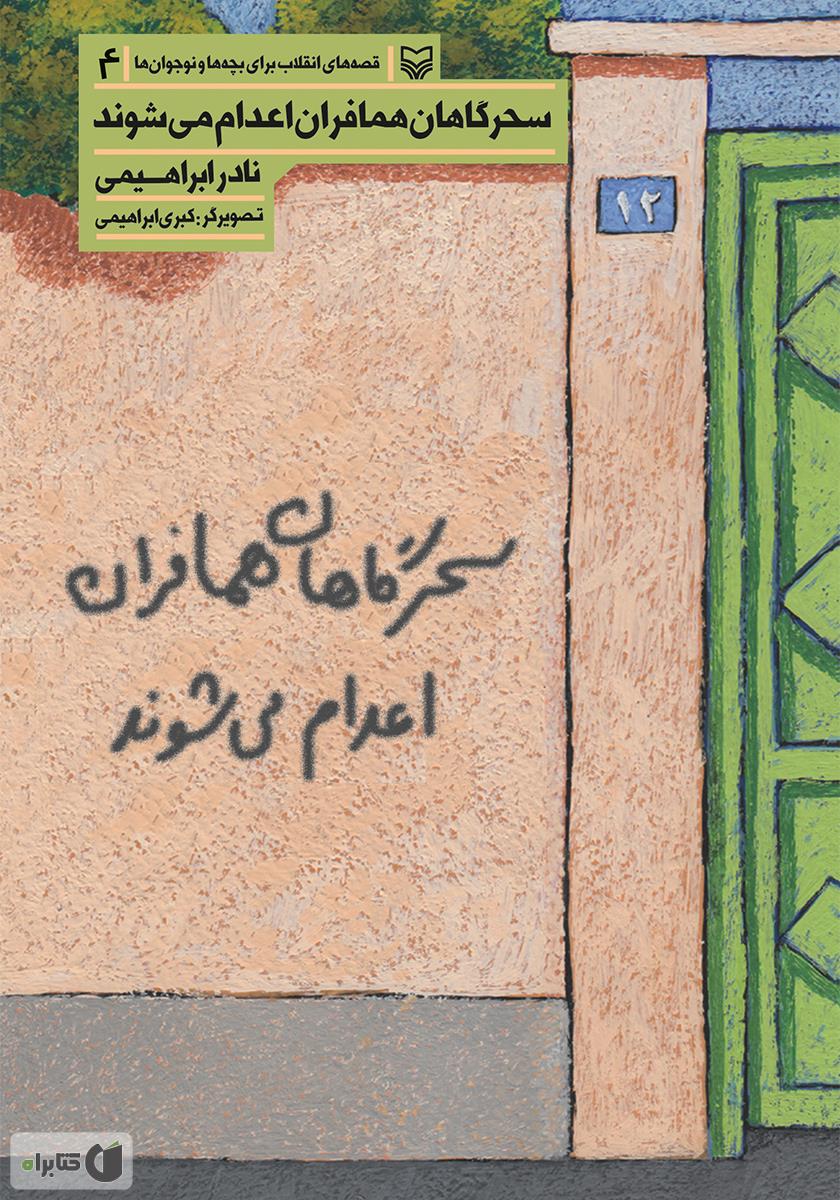 قصه‌های انقلاب برای بچه‌ها و نوجوان‌ها ۴
سحرگاهان همافران اعدام می‌شوند
نادر ابراهیمی
تصویرگر: کبری ابراهیمی
۱۲
سحرگاهان همافران
اعدام می‌شوند
کتابراه